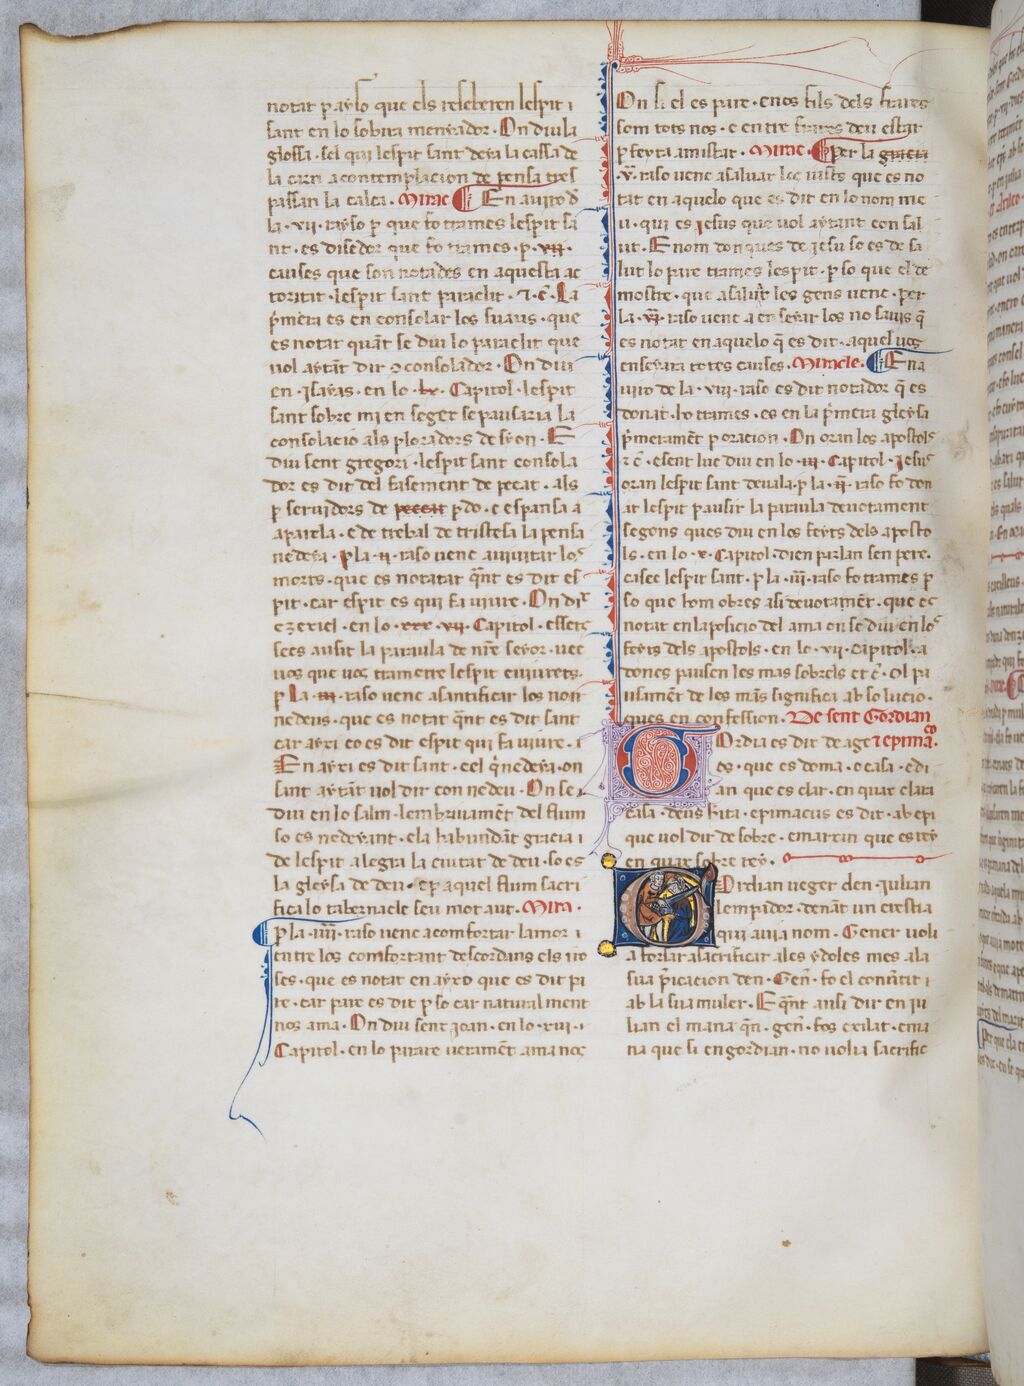 notat p ayso que els reseberen lespit i
sant en lo sobira menjador · On diu la
glossa · sel qui lespit sant deya la cassa de
la carn a contemplacion de pensa tres
passan la calca · Mirac ¶ En auiro d
la · vii · rayso p que fo trames lespit sa
nt · es disedor que fo trames · p · vii ·
causes que son notades en aquesta ac
toritit · lespit sant paraclit · ⁊ c̄ · La
p̄mera es en consolar los suaus · que
es notat quāt se diu lo paraclit que
uol aytāt dir ꝯ consolador · On diu
en · isayas · en lo · lx · Capitol · lespit
sant sobre mi en seget se pausaria la
consolacio als ploradors de syon · E
diu sent gregori · lespit sant consola
dor es dit del fasement de pecat · als
p seruidors de peccat pdo · e espansa a
aparela · e de trebal de tristesa la pensa
nedeya · p la · ii · raso uenc auiuitar los
morts · que es notatat q̄nt es dit es
pit · car espit es qui fa uiure · On dir
ezeziel · en lo · xxx · vii · Capitol · esses
sees ausit la paraula de nr̄e seyor · uec
uos que uos trametre lespit e uiurets ·
p La · iii · raso uenc a santificar los non
nedeus · que es notat q̄nt es dit sant
car ayxi co es dit espit qui fa uiure · i
En ayxi es dit sant · e el q̄ nedeya · on
sant aytāt uol dir con nedeu · On se
diu en lo salm · lembriuamēt del flum
so es nedeyant · ela habundāt gracia i
de lespit alegra la ciutat de deu · so es
la gleysa de deu · e p aquel flum sacri
fica lo tabernacle seu mot aut · Mira ·
p la · iiii · raso uenc a comfortar lamor i
entre los comfortant descordans els uo
ses · que es notat en ayxo que es dit pa
re · car pare es dit p so car natural ment
nos ama · On diu sent joan · en lo · xvi · i
Capitol · en lo pirare ueramēt ama nos
On si el es pare · e nos fils dels frares
som tots nos · e entre frares deu estar
p feyta amistat · Mirac · ¶ Per la gracia
v · raso uenc a saluar los iusts que es no
tat en aquelo que es dit en lo nom me
u · qui es jesus que uol aytant con sal
ut · E nom donques de jesu so es de sa
lut lo pare trames lespit · p so que el de
mostre · que a saluar les gens uenc · per
la · vi · raso uenc a enseyar los no sauis q̄
es notat en aquelo q̄ es dit · aquel uos
enseyara totes causes · Miracle · ¶ En a
uiro de la · viii · raso es dit notador q̄ es
donat · ho trames · es en la p̄mera gleysa
p̄merament p oracion · On oran los apostols
⁊ c̄ · e sent luc diu en lo · iii · Capitol · jesus
oran lespit sant deuala · p la · ii · raso fo don
at lespit pausir la paraula deuotament
segons ques diu en los feyts dels aposto
ls · en lo · x · Capitol · dien parlan sen pere ·
casec lespit sant · p la · iii · raso fo trames p
so que hom obres asi deuotamēt · que es
notat en laposicio del ama on se diu en los
feyts dels apostols · en lo · vii · capitol · a
dones pausen les mas sobrels et c̄ · Ol pa
usament de les mās significa absolucio ·
ques en confession · De sent Gordian
⁊ epimaco ·
Gordia es dit de age
os · que es doma · o casa · e di
an que es clar · en quar clara
casa · deus hita · epimacus es dit · ab epi
que uol dit de sobre · e martin que es rey
en quar sobre rey ·
Ordian ueger den · julian
lempador · denāt un crestia
qui auia nom · Gener uoli
a forsar a sacrificar a les ydoles mes a la
sua p̄dicacion den · Gen̄ · fo el conuertit i
ab la sua muler · E q̄nt ausi dir en ju
lian el mana q̄n · gen̄ · fos exilat · e ma
na que si en gordian · no uolia sacrific